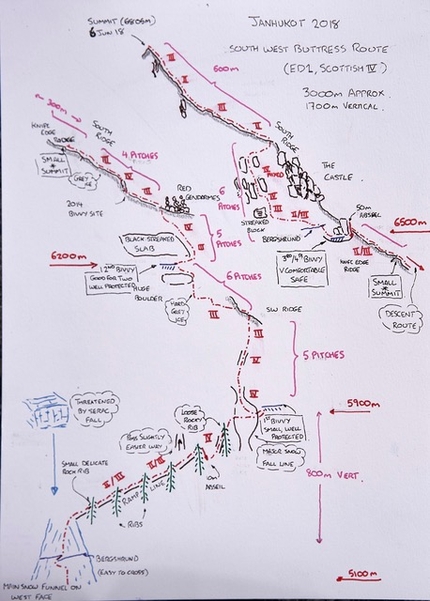 JANHUKOT 2018
SOUTH WEST BUTTRESS ROUTE
(ED1, SCOTTISH IV)
3000M APPROX
1700M VERTICAL.
SUMMIT (6805M)
6 JUN 18
III
600M
II
III
II
SOUTH
RIDGE
THE
CASTLE
300M
KNIFE
EDGE
RIDGE
SOUTH
RIDGE
SMALL
SUMMIT
GREY
ICE
4 PITCHES
2014
BIVVY SITE
RED
GENDARMES
6
PITCHES
III
MIXED
STREAKED
BLOCK
II/III
BERGSHRUND
50M
ABSEIL
6500M
3RD/4TH BIVVY
V COMFORTABLE
SAFE
II/III
KNIFE EDGE
RIDGE
SMALL
SUMMIT
DESCENT
ROUTE
IV
5
PITCHES
BLACK STREAKED
SLAB
6200M
2ND BIVVY
GOOD FOR TWO
WELL PROTECTED
HUGE
BOULDER
6 PITCHES
HARD
GREY
ICE
III
SW RIDGE
III
IV
IV
5 PITCHES
5900M
1ST BIVVY
SMALL, WELL
PROTECTED
MAJOR SNOW
FALL LINE
800M VERT.
THREATENED
BY SERAC
FALL
LOOSE
ROCKY
RIB
IV
SLIGHTLY
EASIER WAY
10M
ABSEIL
SMALL DELICATE
ROCK RIB
II/III
II/III
RAMP LINE
RIBS
BERGSHRUND
(EASY TO CROSS)
MAIN SNOW FUNNEL ON
WEST FACE
5100M